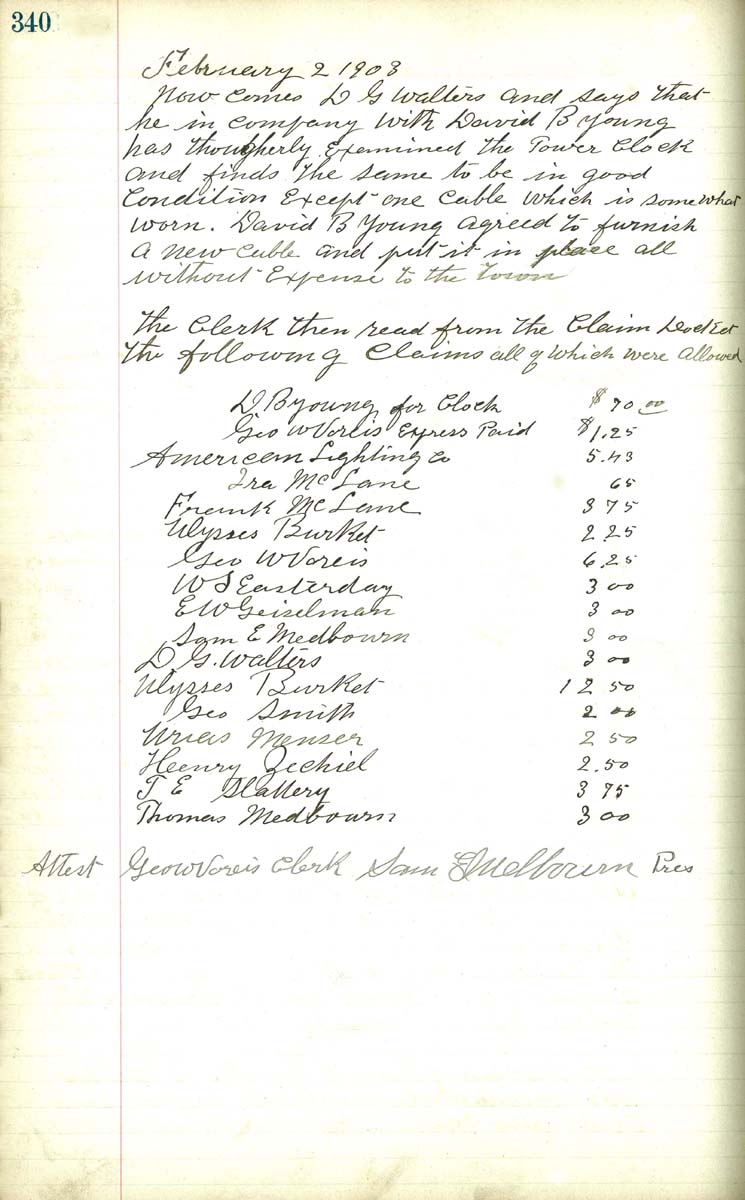 340
February 2 1903
Now comes D G Walters and says that
he in company with David B Young
has thougherly Examined the Tower Clock
and finds the same to be in good
Condition Except one Cable which is somewhat
worn. David B Young agreed to furnish
a new Cable and put it in place all
without Expense to the Town
The Clerk then read from the Claim Docket
the following Claims all of which were Allowed
D B Young for Clock $ 70 00
Geo W Voreis Express Paid $1.25
American Lighting Co 5.43
Ira McLane 65
Frank McLane 3 75
Ulysses Burket 2 25
Geo W Voreis 6.25
W S Easterday 3 00
E W Geiselman 3 00
Sam E Medbourn 3 00
D. G. Walters 3 00
Ulysses Burket 12 50
Geo Smith 2 00
Urias Menser 2 50
Henry Zechiel 2.50
T E Slattery 3 75
Thomas Medbourn 3 00
Attest Geo W Voreis Clerk Sam E Medbourn Pres